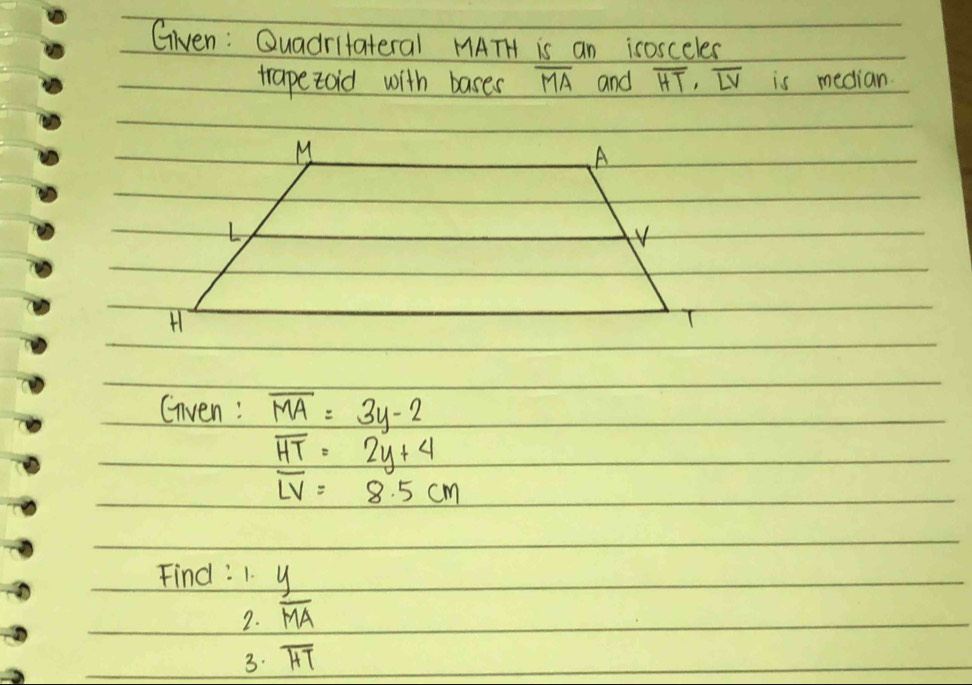 Given: Quadrilateral MATH is an isosceles
trapezoid with bases M̅A̅ and H̅T̅, L̅V̅ is median.
M A
L V
H T
Given: M̅A̅ = 3y-2
H̅T̅ = 2y+4
L̅V̅ = 8.5 cm
Find: 1. y
2. M̅A̅
3. H̅T̅